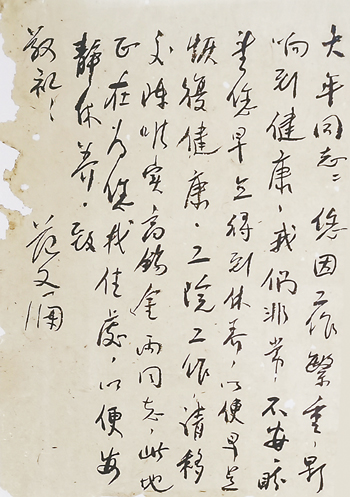 大年同志：您因工作繁重，影
响到健康，我们非常不安，希
望您早 得到休养，以便早
恢复健康。工院工作，请移
交陈唯实、高锡金两同志，此地
正在为您找住处，以便安
静休养。致
敬礼！
范文澜